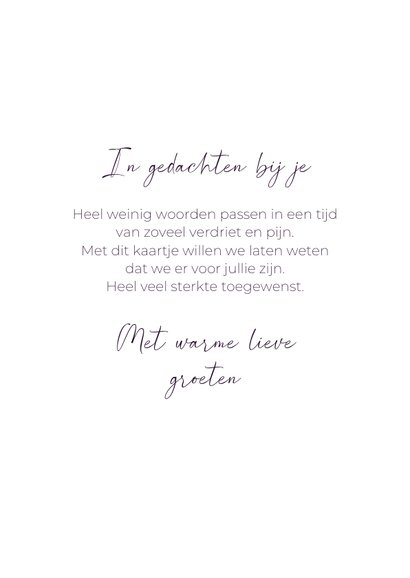 In gedachten bij je
Heel weinig woorden passen in een tijd
van zoveel verdriet en pijn.
Met dit kaartje willen we laten weten
dat we er voor jullie zijn.
Heel veel sterkte toegewenst.
Met warme lieve
groeten